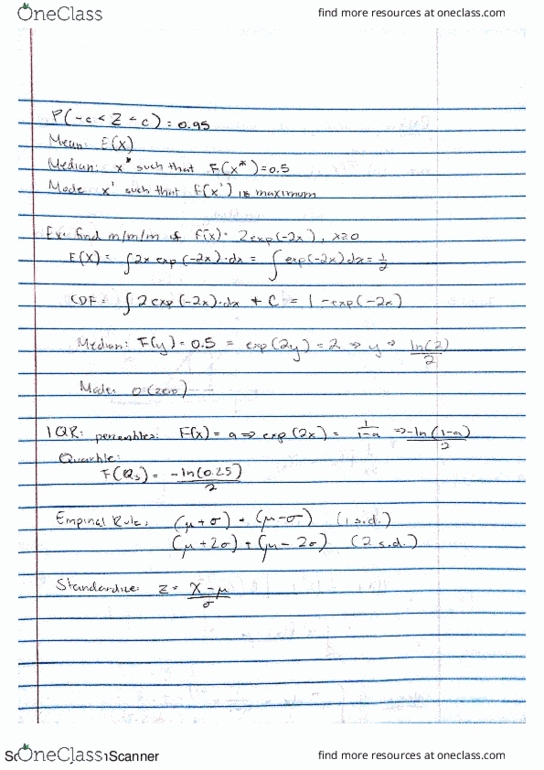 OneClass
find more resources at oneclass.com
P(-c < Z < c) = 0.95
Mean: E(X)
Median: x* such that F(x*) = 0.5
Mode: x' such that f(x') is maximum
Ex: find m/m/m if f(x) = 2exp(-2x), x≥0
E(X) = ∫2x exp(-2x)·dx = ∫exp(-2x)dx = 1/2
CDF = ∫ 2 exp(-2x)·dx + C = 1 - exp(-2x)
Median: F(y) = 0.5 = exp(2y) = 2 ⇒ y ⇒ ln(2)/2
Mode: 0 (zero)
IQR: percentiles: F(x) = a ⇒ exp(2x) = 1/(1-a) ⇒ -ln(1-a)/2
Quartile:
F(Q₃) = -ln(0.25)/2
Empirical Rule: (μ+σ) + (μ-σ) (1 s.d.)
(μ+2σ) + (μ-2σ) (2 s.d.)
Standardize: z = X-μ/σ
OneClass
Scanner
find more resources at oneclass.com